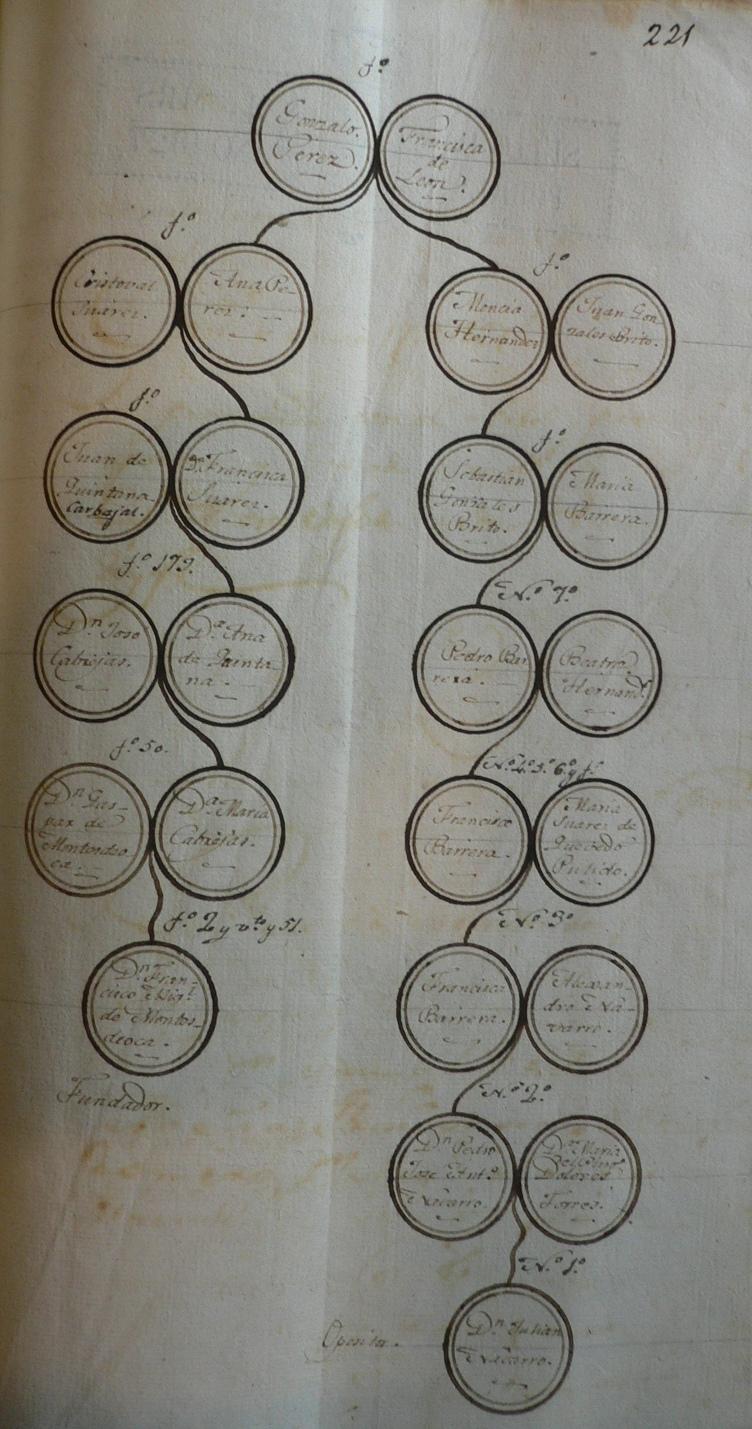 221
f.º
Gonzalo
Perez.
Francisca
de
Leon.
f.º
Cristoval
Suarez.
Ana Pe-
rez.
f.º
Mencia
Hernandez
Juan Gon
zales Brito.
f.º
Juan de
Quintana
Carbajal.
D.ª Francisca
Suarez.
f.º
Sebastian
Gonzales
Brito.
Maria
Barrera.
f.º 179.
D.n Jose
Cabrejas.
D.ª Ana
de Quinta-
na.
N.º 7.º
Pedro Bar
rera.
Beatriz
Hernand.z
f.º 50.
D.n Gas-
par de
Montesdeo
ca.
D.ª Maria
Cabrejas.
N.º 4.º 5.º 6.º y f.º
Francisco
Barrera.
Maria
Suarez de
Quevedo
Pulido.
f.º 2 y v.to y 51.
D.n Fran-
cisco Mig.l
de Montes-
deoca.
Fundador.
N.º 3.º
Francisca
Barrera.
Alexan-
dro Na-
varro.
N.º 2.º
D.n Pedro
Joze Ant.º
Navarro.
D.ª Maria
Dolores
Torres.
N.º 1.º
Opositor.
D.n Julian
Navarro.